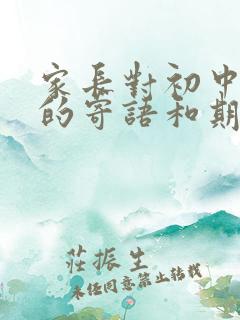 家長對初中
的寄語和期
莊振生
未經同意禁止轉載